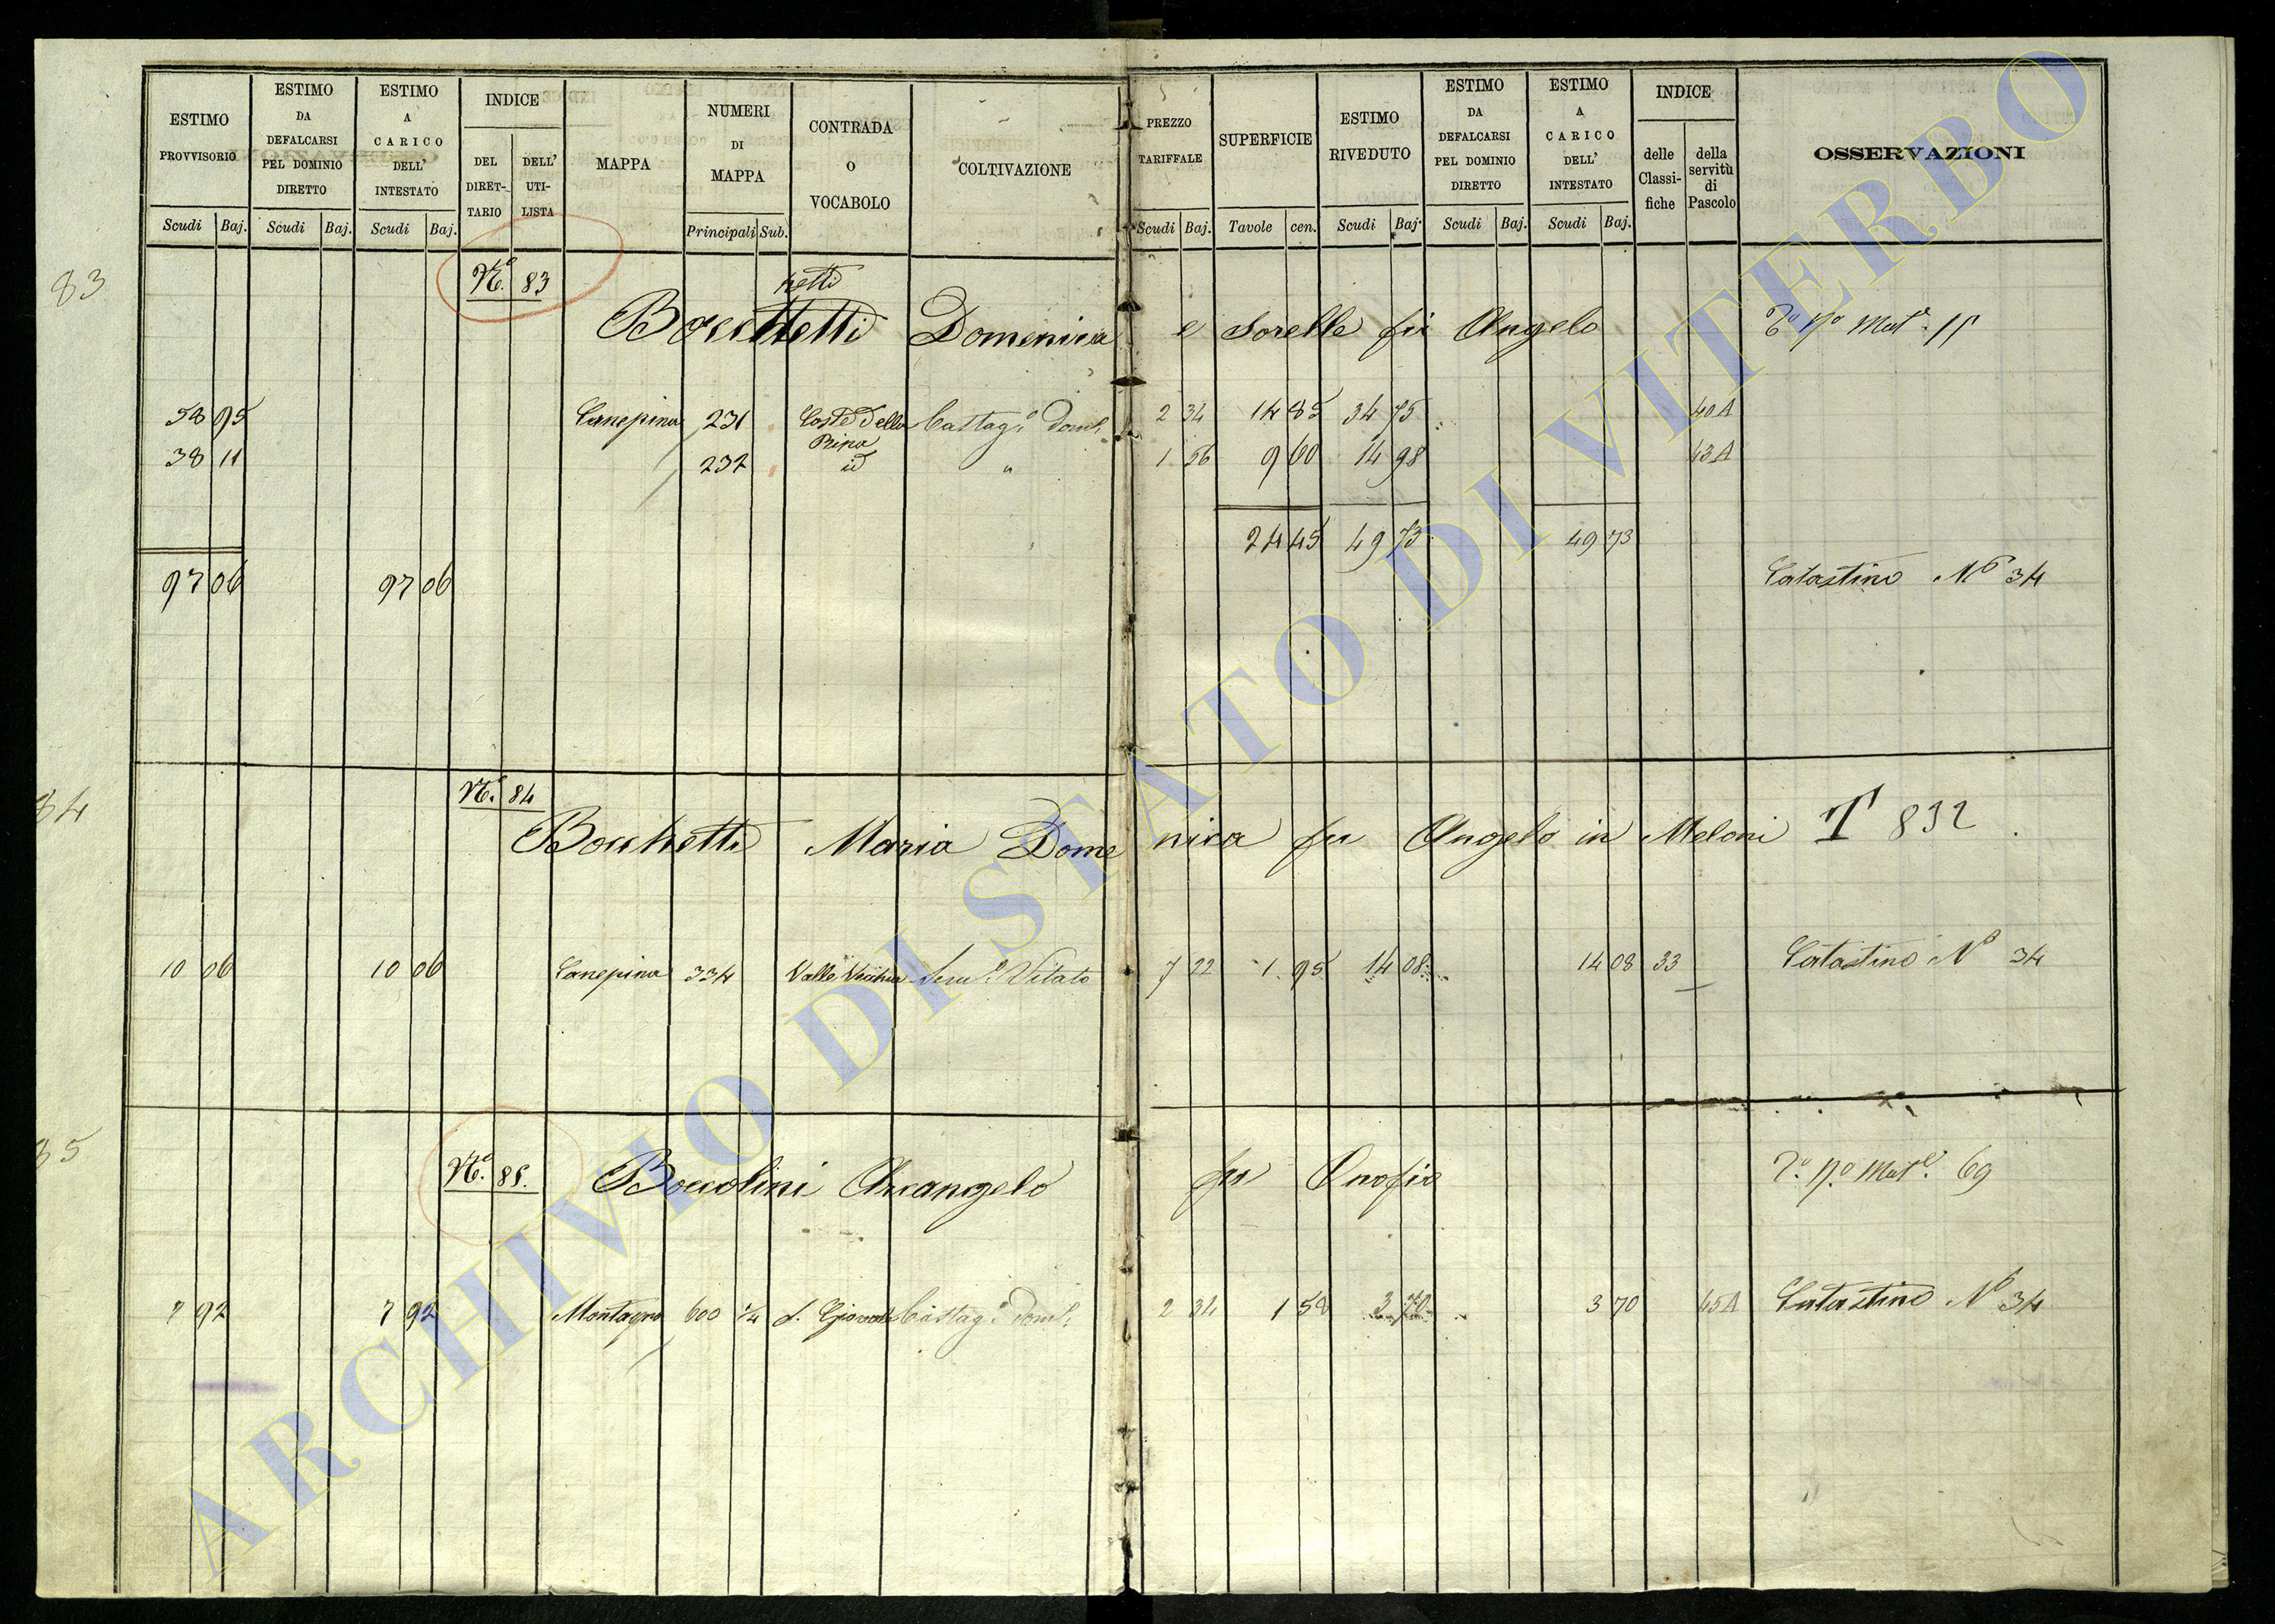 ESTIMO PROVVISORIO Scudi Baj.
ESTIMO DA DEFALCARSI PEL DOMINIO DIRETTO Scudi Baj.
ESTIMO A CARICO DELL' INTESTATO Scudi Baj.
INDICE DEL DIRET-TARIO DELL' UTI-LISTA
MAPPA
NUMERI DI MAPPA Principali Sub.
CONTRADA O VOCABOLO
COLTIVAZIONE
PREZZO TARIFFALE Scudi Baj.
SUPERFICIE Tavole cen.
ESTIMO RIVEDUTO Scudi Baj.
ESTIMO DA DEFALCARSI PEL DOMINIO DIRETTO Scudi Baj.
ESTIMO A CARICO DELL' INTESTATO Scudi Baj.
INDICE delle Classi-fiche della servitù di Pascolo
OSSERVAZIONI
83
N.º 83
hetti
Bocchetti Domenica e Sorelle fu Angelo
58 95 Canepina 231 Coste della Ripa Castag.º Dom.º 2 34 14 85 34 75 40A
38 11 232 id " 1 56 9 60 14 98 43A
24 45 49 73 49 73
97 06 97 06 Catastino Nº 34
84
N.º 84
Bocchetti Maria Domenica fu Angelo in Meloni T 832
10 06 10 06 Canepina 334 Valle Vecchia Sem.º Vitato 7 22 1 95 14 08 14 08 33 Catastino Nº 34
85
N.º 85.
Boccolini Arcangelo fu Onofrio Mat.º 69
7 92 7 92 Montagna 600 1/4 S. Giovanni Castag.º Dom.º 2 34 1 58 3 70 3 70 45A Catastino Nº 34
ARCHIVIO DI STATO DI VITERBO